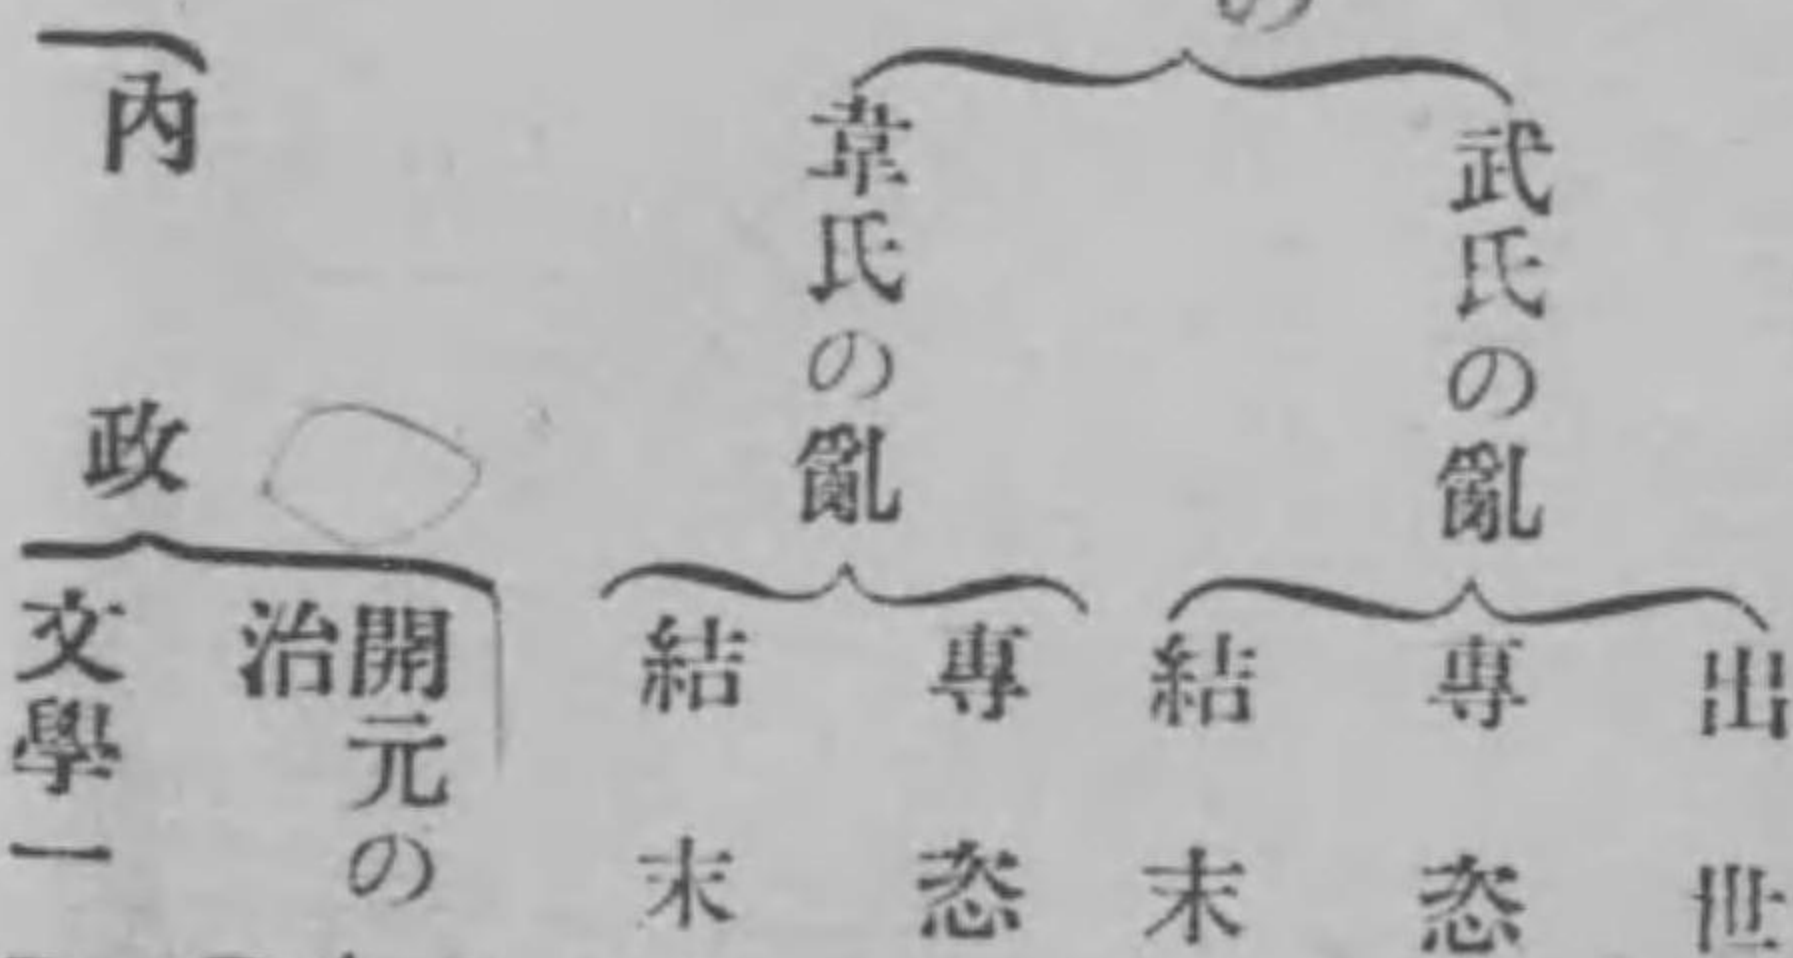 の
武氏の亂
出世
專恣
結末
韋氏の亂
專恣
結末
內政
開元の
治
文學一